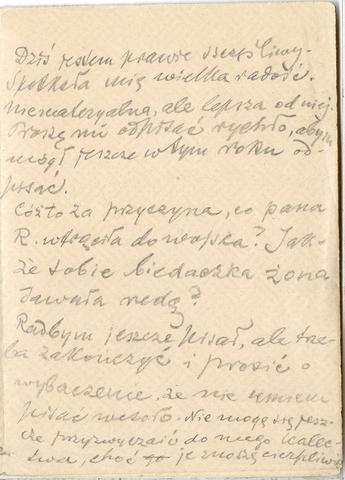 Dziś jestem prawie szczęśliwy.
Spotkała mię wielka radość.
Niemateryalna, ale lepsza od niej.
Proszę mi odpisać rychło, abym
mógł jeszcze w tym roku od-
pisać.
Cóż to za przyczyna, co pana
R. wtrąciła do wojska? Jak-
że sobie biedaczka żona
dawała redę?
Radbym jeszcze pisał, ale trze-
ba zakończyć i prosić o
wybaczenie, że nie umiem
pisać wesoło. Nie mogę się jesz-
cze przyzwyczaić do mego kalec-
twa, choć je znoszę cierpliwie